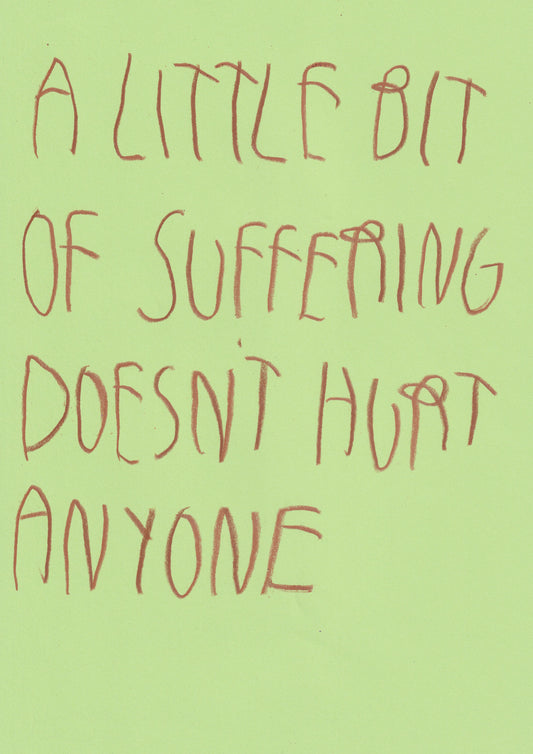 A LITTLE BIT
OF SUFFERING
DOESN'T HURT
ANYONE